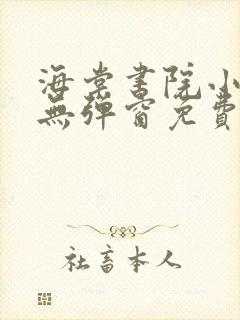 海棠書院小
無彈窗免費
社畜本人